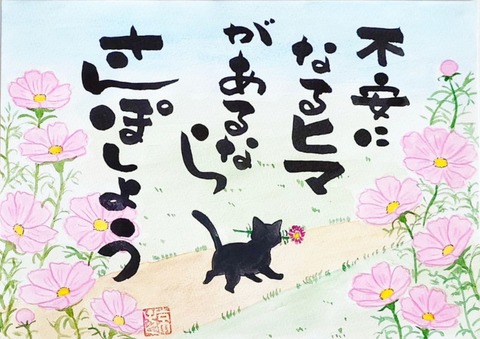 不安に
なるヒマ
があるなら
さんぽしょう